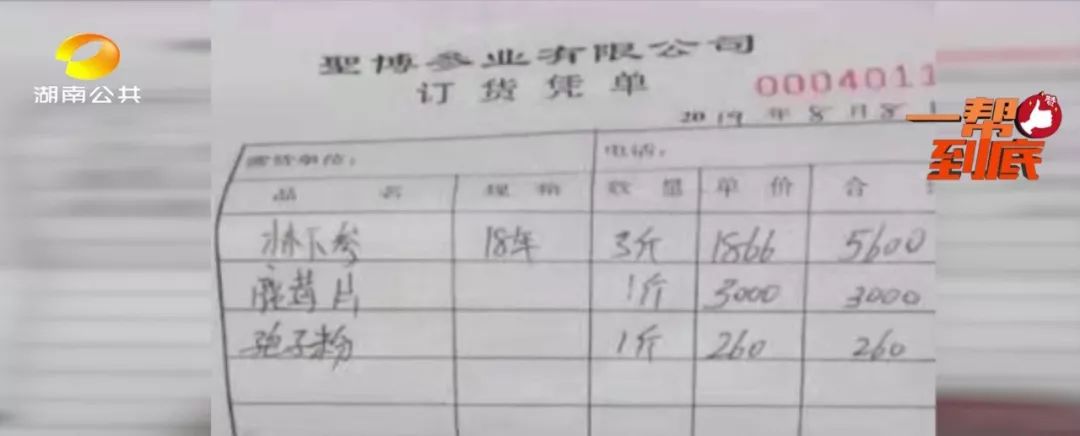 湖南公共
聖博参业有限公司
订货凭单
0004011
2019年8月8日
一帮到底
需货单位： 电话：
品名 规格 数量 单价 合
林下参 18年 3斤 1866 5600
鹿茸片 1斤 3000 3000
孢子粉 1斤 260 260